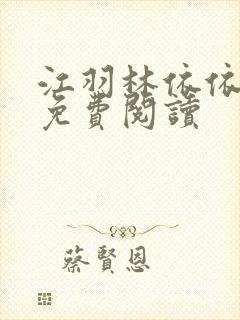 江羽林依依
免費閱讀
蔡賢恩